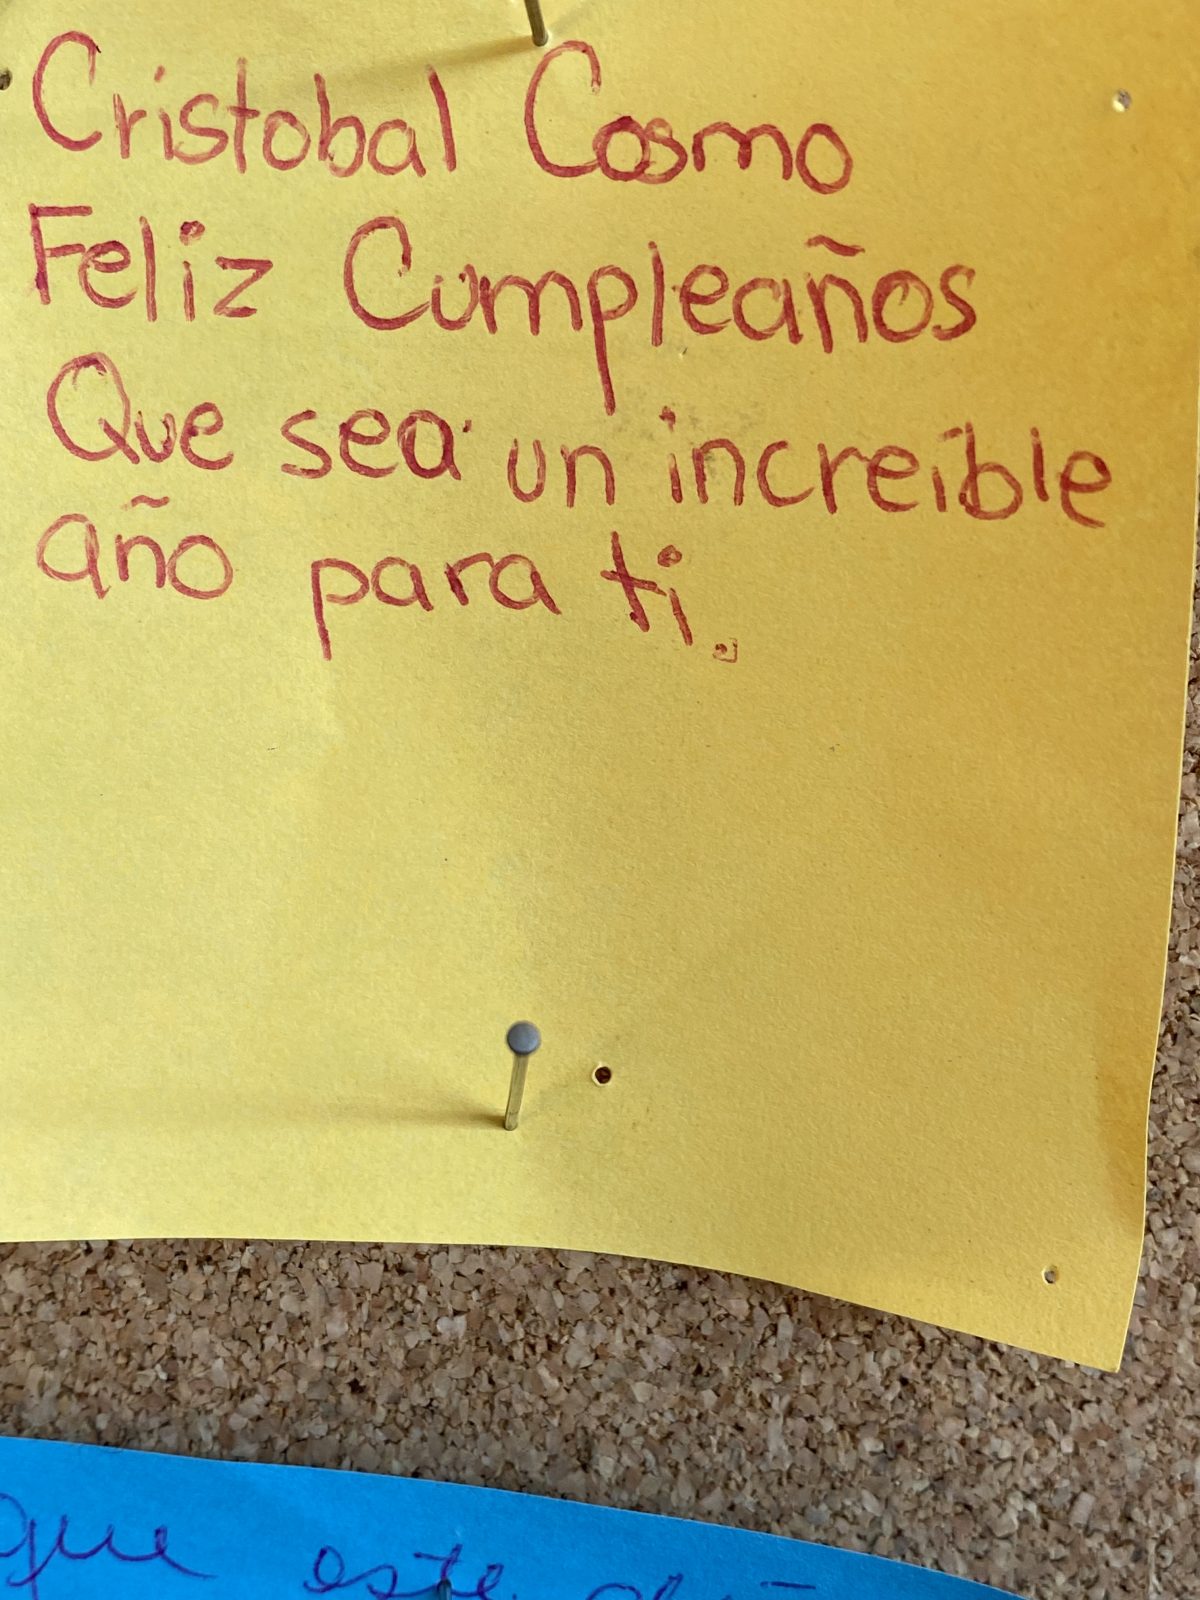 Cristobal Cosmo
Feliz Cumpleaños
Que sea un increíble
año para ti.
que este